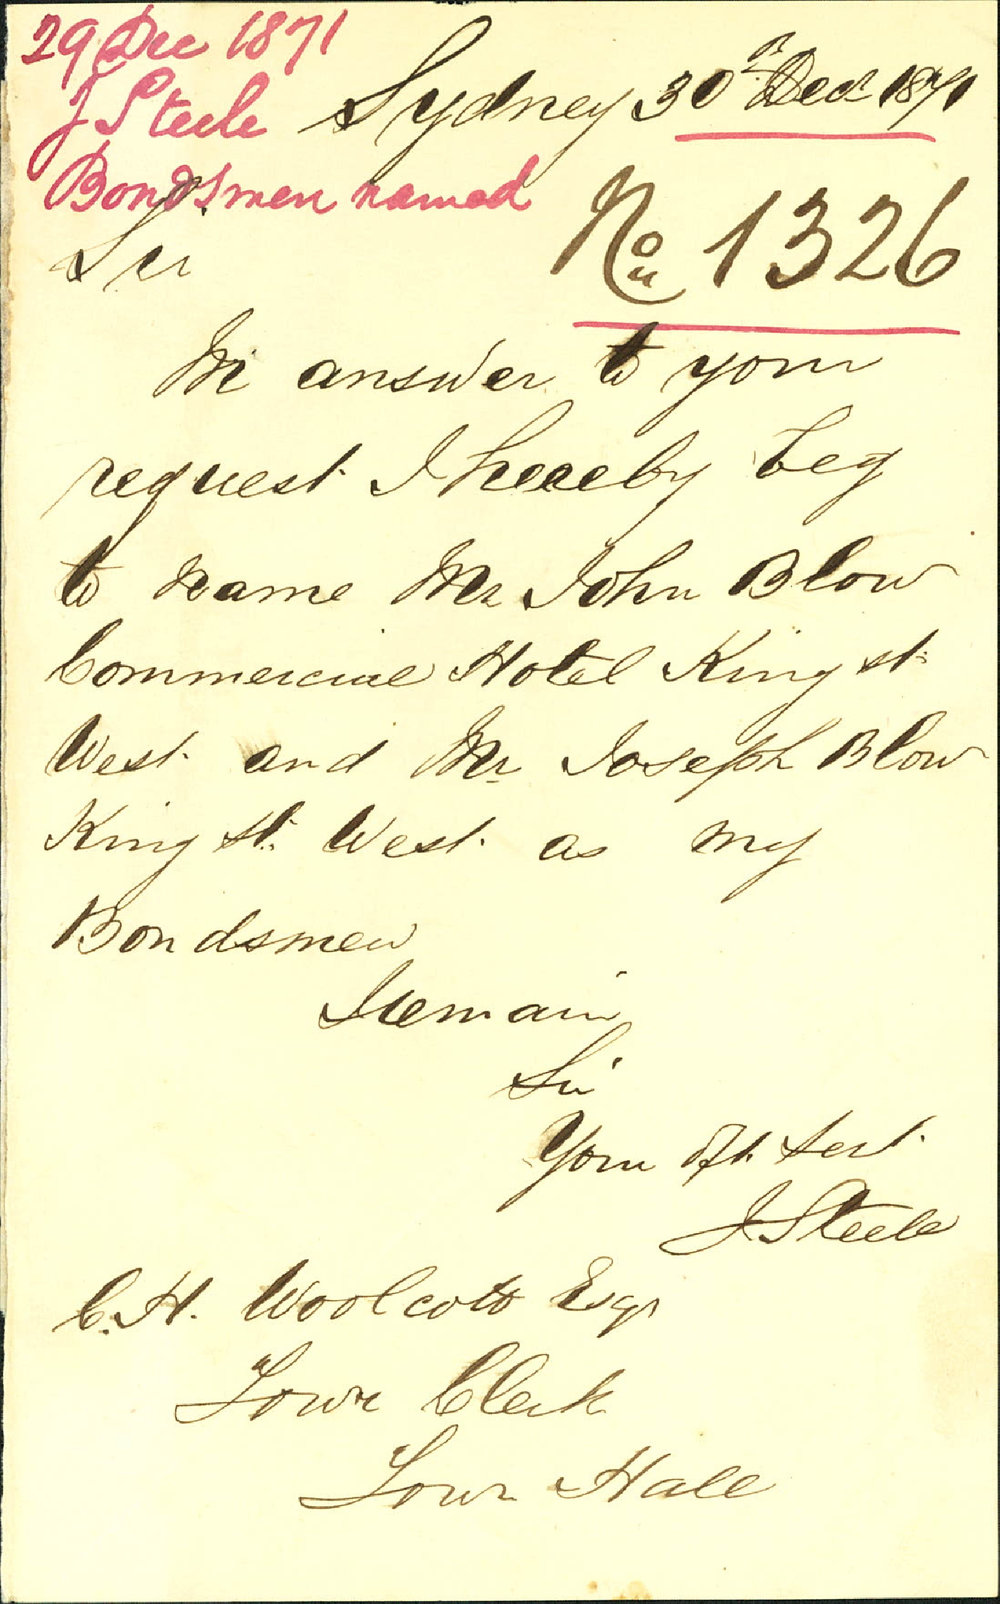 29 Dec 1871
J Steele
Bondsmen named
Sydney 30th Decr 1871
No 1326
Sir
In answer to your
request I hereby beg
to name Mr John Blow
Commercial Hotel King st
West and Mr Joseph Blow
King St. West as my
Bondsmen
I remain
Sir
Your Obt. Servt.
J. Steele
C. H. Woolcott Esqr
Town Clerk
Town Hall